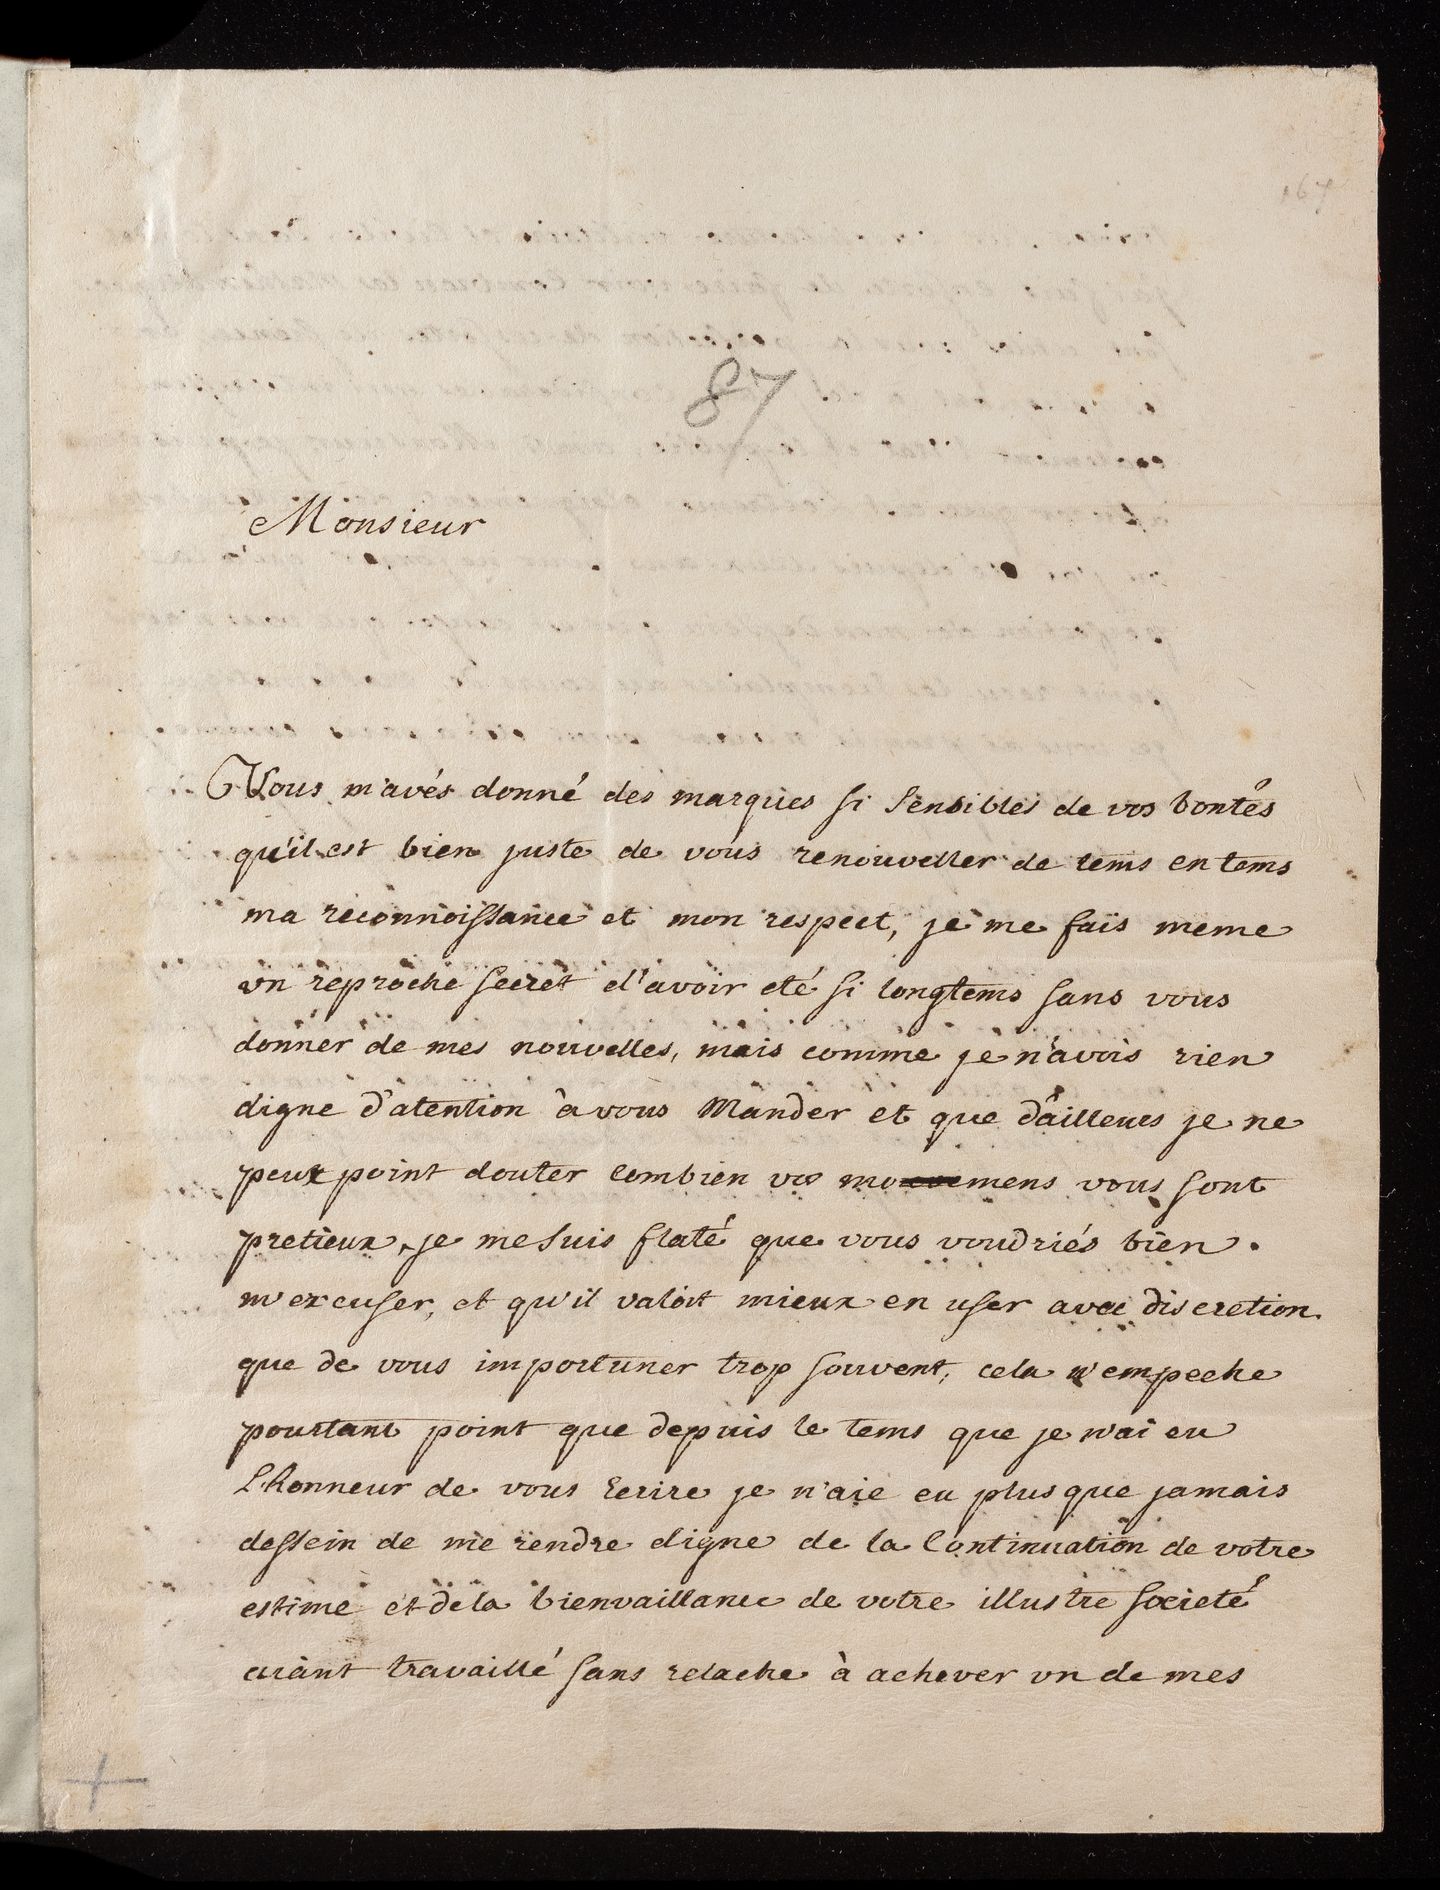 167
87
Monsieur
Vous m'avés donné des marques si sensibles de vos bontés
qu'il est bien juste de vous renouveller de tems en tems
ma reconnoissance et mon respect, je me fais meme
un reproche secret d'avoir eté si longtems sans vous
donner de mes nouvelles, mais comme je n'avois rien
digne d'atention à vous Mander et que d'ailleurs je ne
peux point douter combien vos momens vous sont
pretieux, je me suis flaté que vous voudriés bien
m'excuser, et qu'il valoit mieux en user avec discretion
que de vous importuner trop souvent, cela n'empeche
pourtant point que depuis le tems que je n'ai eu
l'honneur de vous Ecrire je n'aie eu plus que jamais
dessein de me rendre digne de la Continuation de votre
estime et de la bienvaillance de votre illustre societé
aiant travaillé sans relache à achever un de mes